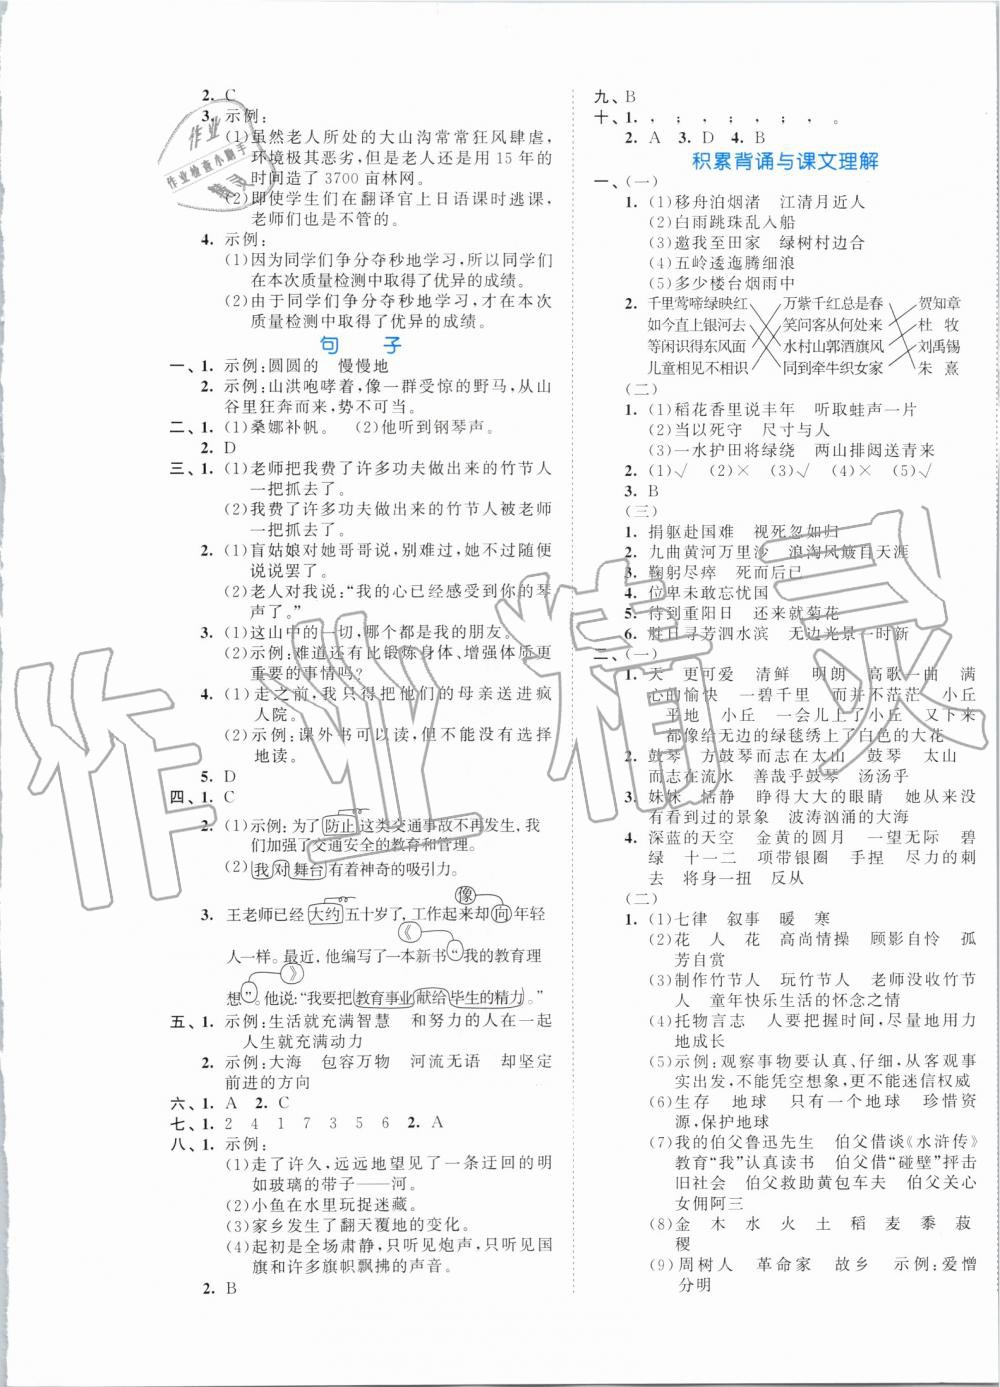 2. C
3. 示例:
(1)虽然老人所处的大山沟常常狂风肆虐,
环境极其恶劣,但是老人还是用 15 年的
时间造了 3700 亩林网。
(2)即使学生们在翻译官上日语课时逃课,
老师们也是不管的。
4. 示例:
(1)因为同学们争分夺秒地学习,所以同学们
在本次质量检测中取得了优异的成绩。
(2)由于同学们争分夺秒地学习,才在本次
质量检测中取得了优异的成绩。
句 子
一、1. 示例:圆圆的 慢慢地
2. 示例:山洪咆哮着,像一群受惊的野马,从山
谷里狂奔而来,势不可当。
二、1. (1)桑娜补帆。 (2)他听到钢琴声。
2. D
三、1. (1)老师把我费了许多功夫做出来的竹节人
一把抓去了。
(2)我费了许多功夫做出来的竹节人被老师
一把抓去了。
2. (1)盲姑娘对她哥哥说,别难过,她不过随便
说说罢了。
(2)老人对我说:“我的心已经感受到你的琴
声了。”
3. (1)这山中的一切,哪个都是我的朋友。
(2)示例:难道还有比锻炼身体、增强体质更
重要的事情吗?
4. (1)走之前,我只得把他们的母亲送进疯
人院。
(2)示例:课外书可以读,但不能没有选择
地读。
5. D
四、1. C
2. (1)示例:为了防止这类交通事故不再发生,我
们加强了交通安全的教育和管理。
(2)我对舞台有着神奇的吸引力。
像
3. 王老师已经大约五十岁了,工作起来却向年轻
《
人一样。最近,他编写了一本新书“我的教育理
》
想”。他说:“我要把教育事业献给毕生的精力。”
五、1. 示例:生活就充满智慧 和努力的人在一起
人生就充满动力
2. 示例:大海 包容万物 河流无语 却坚定
前进的方向
六、1. A 2. C
七、1. 2 4 1 7 3 5 6 2. A
八、1. 示例:
(1)走了许久,远远地望见了一条迂回的明
如玻璃的带子——河。
(2)小鱼在水里玩捉迷藏。
(3)家乡发生了翻天覆地的变化。
(4)起初是全场肃静,只听见炮声,只听见国
旗和许多旗帜飘拂的声音。
2. B
九、B
十、1. , ; , ; , ; , 。
2. A 3. D 4. B
积累背诵与课文理解
一、(一)
1. (1)移舟泊烟渚 江清月近人
(2)白雨跳珠乱入船
(3)邀我至田家 绿树村边合
(4)五岭逶迤腾细浪
(5)多少楼台烟雨中
2. 千里莺啼绿映红 万紫千红总是春 贺知章
如今直上银河去 笑问客从何处来 杜 牧
等闲识得东风面 水村山郭酒旗风 刘禹锡
儿童相见不相识 同到牵牛织女家 朱 熹
(二)
1. (1)稻花香里说丰年 听取蛙声一片
(2)当以死守 尺寸与人
(3)一水护田将绿绕 两山排闼送青来
2. (1)√ (2)× (3)√ (4)× (5)√
3. B
(三)
1. 捐躯赴国难 视死忽如归
2. 九曲黄河万里沙 浪淘风簸自天涯
3. 鞠躬尽瘁 死而后已
4. 位卑未敢忘忧国
5. 待到重阳日 还来就菊花
6. 胜日寻芳泗水滨 无边光景一时新
二、(一)
1. 天 更可爱 清鲜 明朗 高歌一曲 满
心的愉快 一碧千里 而并不茫茫 小丘
平地 小丘 一会儿上了小丘 又下来
都像给无边的绿毯绣上了白色的大花
2. 鼓琴 方鼓琴而志在太山 鼓琴 太山
而志在流水 善哉乎鼓琴 汤汤乎
3. 妹妹 恬静 睁得大大的眼睛 她从来没
有看到过的景象 波涛汹涌的大海
4. 深蓝的天空 金黄的圆月 一望无际 碧
绿 十一二 项带银圈 手捏 尽力的刺
去 将身一扭 反从
(二)
1. (1)七律 叙事 暖 寒
(2)花 人 花 高尚情操 顾影自怜 孤
芳自赏
(3)制作竹节人 玩竹节人 老师没收竹节
人 童年快乐生活的怀念之情
(4)托物言志 人要把握时间,尽量地用力
地成长
(5)示例:观察事物要认真、仔细,从客观事
实出发,不能凭空想象,更不能迷信权威
(6)生存 地球 只有一个地球 珍惜资
源,保护地球
(7)我的伯父鲁迅先生 伯父借谈《水浒传》
教育“我”认真读书 伯父借“碰壁”抨击
旧社会 伯父救助黄包车夫 伯父关心
女佣阿三
(8)金 木 水 火 土 稻 麦 黍 菽
稷
(9)周树人 革命家 故乡 示例:爱憎
分明
作业
作业检查小助手
精灵
作业精灵